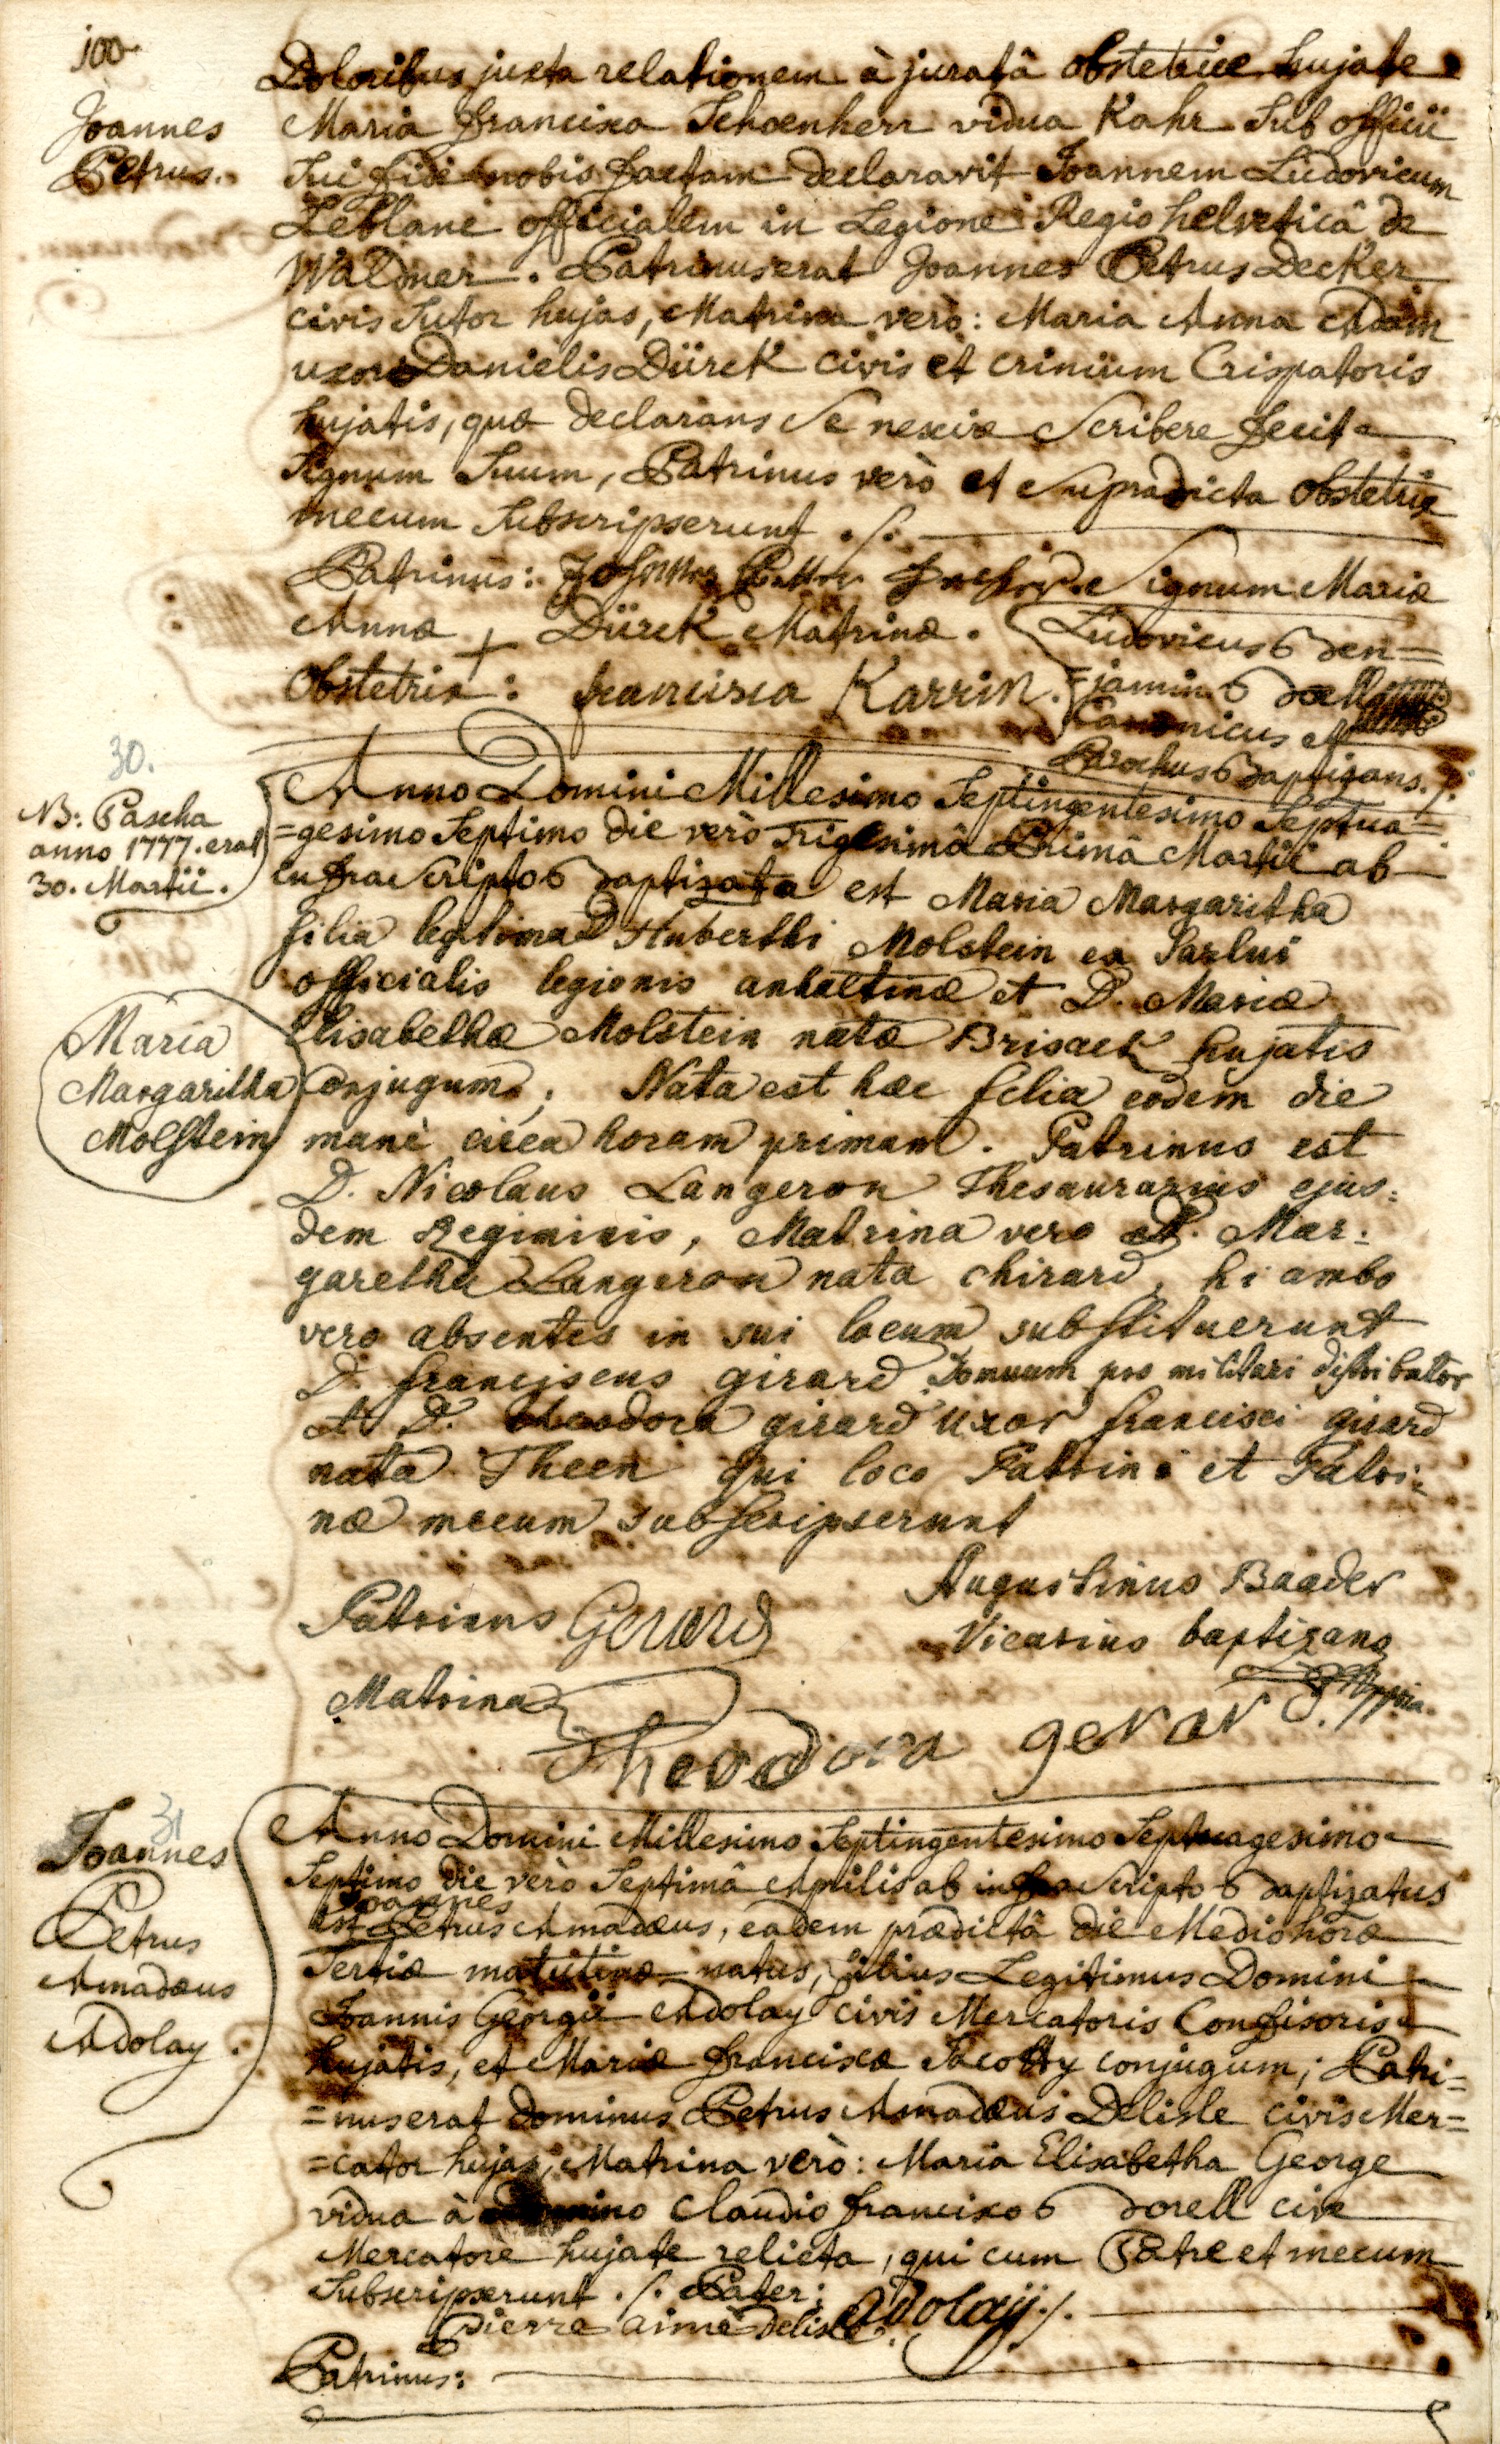 100
Joannes
Petrus.
Doloribus juxta relationem à juratâ obstetrice hujate
Maria Francisca Schoenherr vidua Kahr sub officii
sui fide nobis factam declaravit Joannem Ludovicum
Leblanc officialem in Legione Regio helveticâ de
Waldner. Patrinus erat Joannes Petrus Decker
civis sutor hujas, Matrina verò: Maria Anna Adam
uxor Danielis Dürck civis et crinium Crispatoris
hujatis, quæ declarans se nescire scribere fecit
signum suum, Patrinus verò et supradicta obstetrix
mecum subscripserunt ./.
Patrinus: Johannes Signum Mariæ
Annæ + Dürck Matrinæ. Ludovicus Ben=
Obstetrix: francisca Karrin. =jamin
Canonicus
Parochus Baptizans./.
30.
NB: Pascha
anno 1777. erat
30. Martii.
Anno Domini Millesimo Septingentesimo Septua=
=gesimo Septimo die verò Trigesimâ Primâ Martii ab
infra scripto Baptizata est Maria Margaritha
filia legitima D. Huberthi Molstein ex Sarlui
officialis legionis anhaltinæ et D. Mariæ
Elisabethæ Molstein natæ Brisack hujatis
Maria
Margaritha
Molstein
Conjugum; Nata est hæc filia eodem die
manè circa horam primam. Patrinus est
D. Nicolaus Langeron Thesaurarius ejus:
dem Regiminis, Matrina vero D. Mar:
garetha Langeron nata chirard, hi ambo
vero absentes in sui locum substituerunt
D. franciscus girard Domuum pro militari distributor
et D. theodora girard uxor francisci girard
nata Theen qui loco Patrini et Patri:
næ mecum subscripserunt
Augustinus Baader
Patrinus Gerard
Vicarius baptizans
Matrina
mppria.
Theodora gerard
31
Joannes
Petrus
Amadæus
Adolay.
Anno Domini Millesimo Septingentesimo Septuagesimo
Septimo die verò Septimâ Aprilis ab infra scripto Baptizatus
Joannes
est Petrus Amadæus, eadem prædictâ die Mediohoræ
Tertiæ matutinæ natus, filius Legitimus Domini
Joannis Georgii Adolay civis Mercatoris Confisoris
hujatis, et Mariæ Franciscæ Jacoby conjugum; Patri=
=nus erat Dominus Petrus Amadæus Delisle civis Mer=
=cator hujas, Matrina verò: Maria Elisabetha George
vidua à Domino Claudio Francisco Borell cive
Mercatore hujate relicta, qui cum Patre et mecum
subscripserunt ./. Pater: Adolaÿ./.
pierre aimé delisle.
Patrinus: